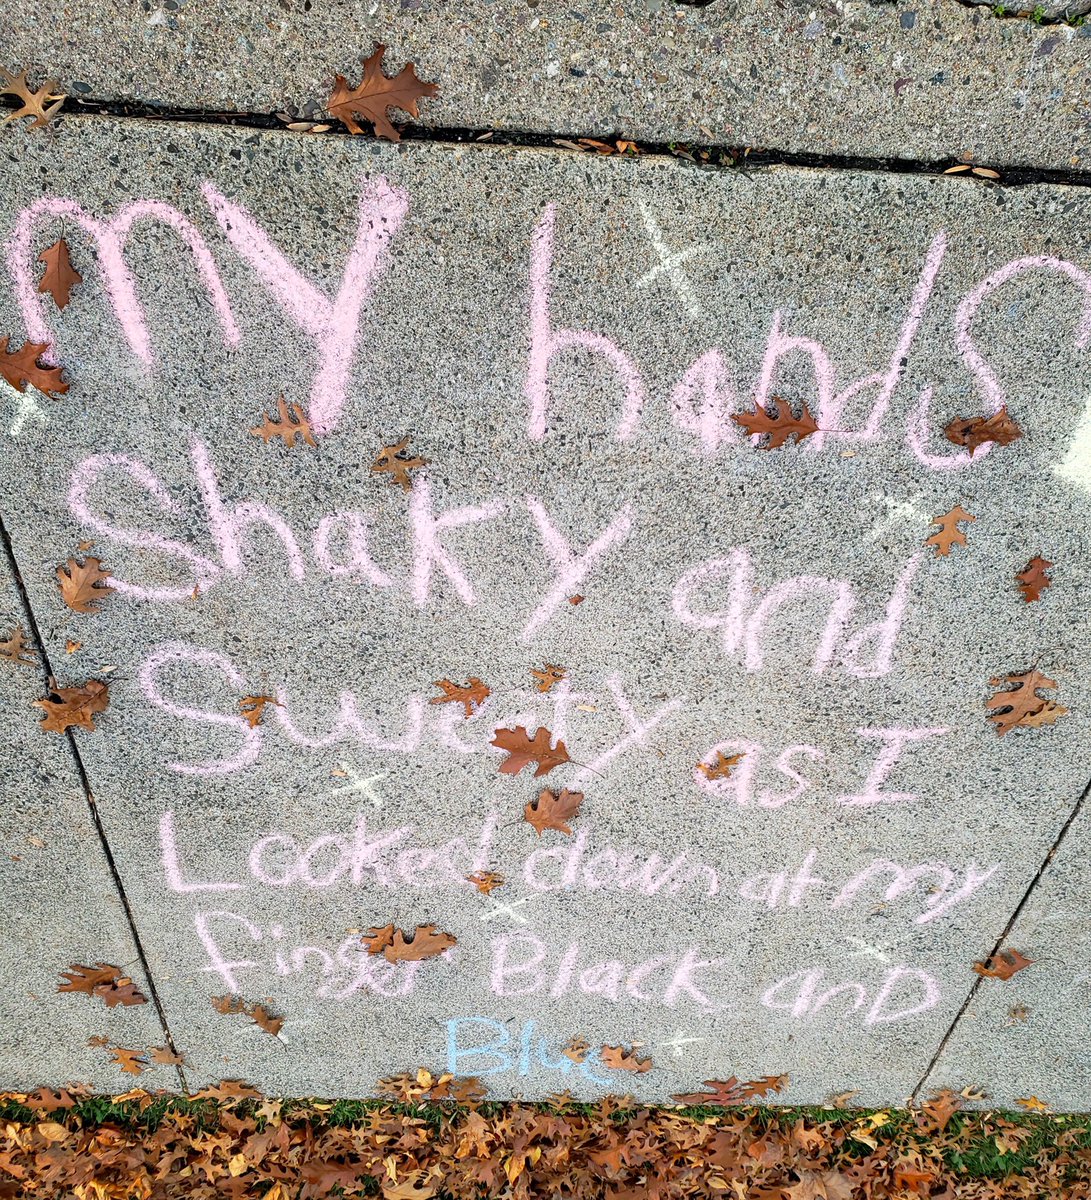 my hands
Shaky and
Sweaty as I
Looked down at my
finger Black anD
Blue